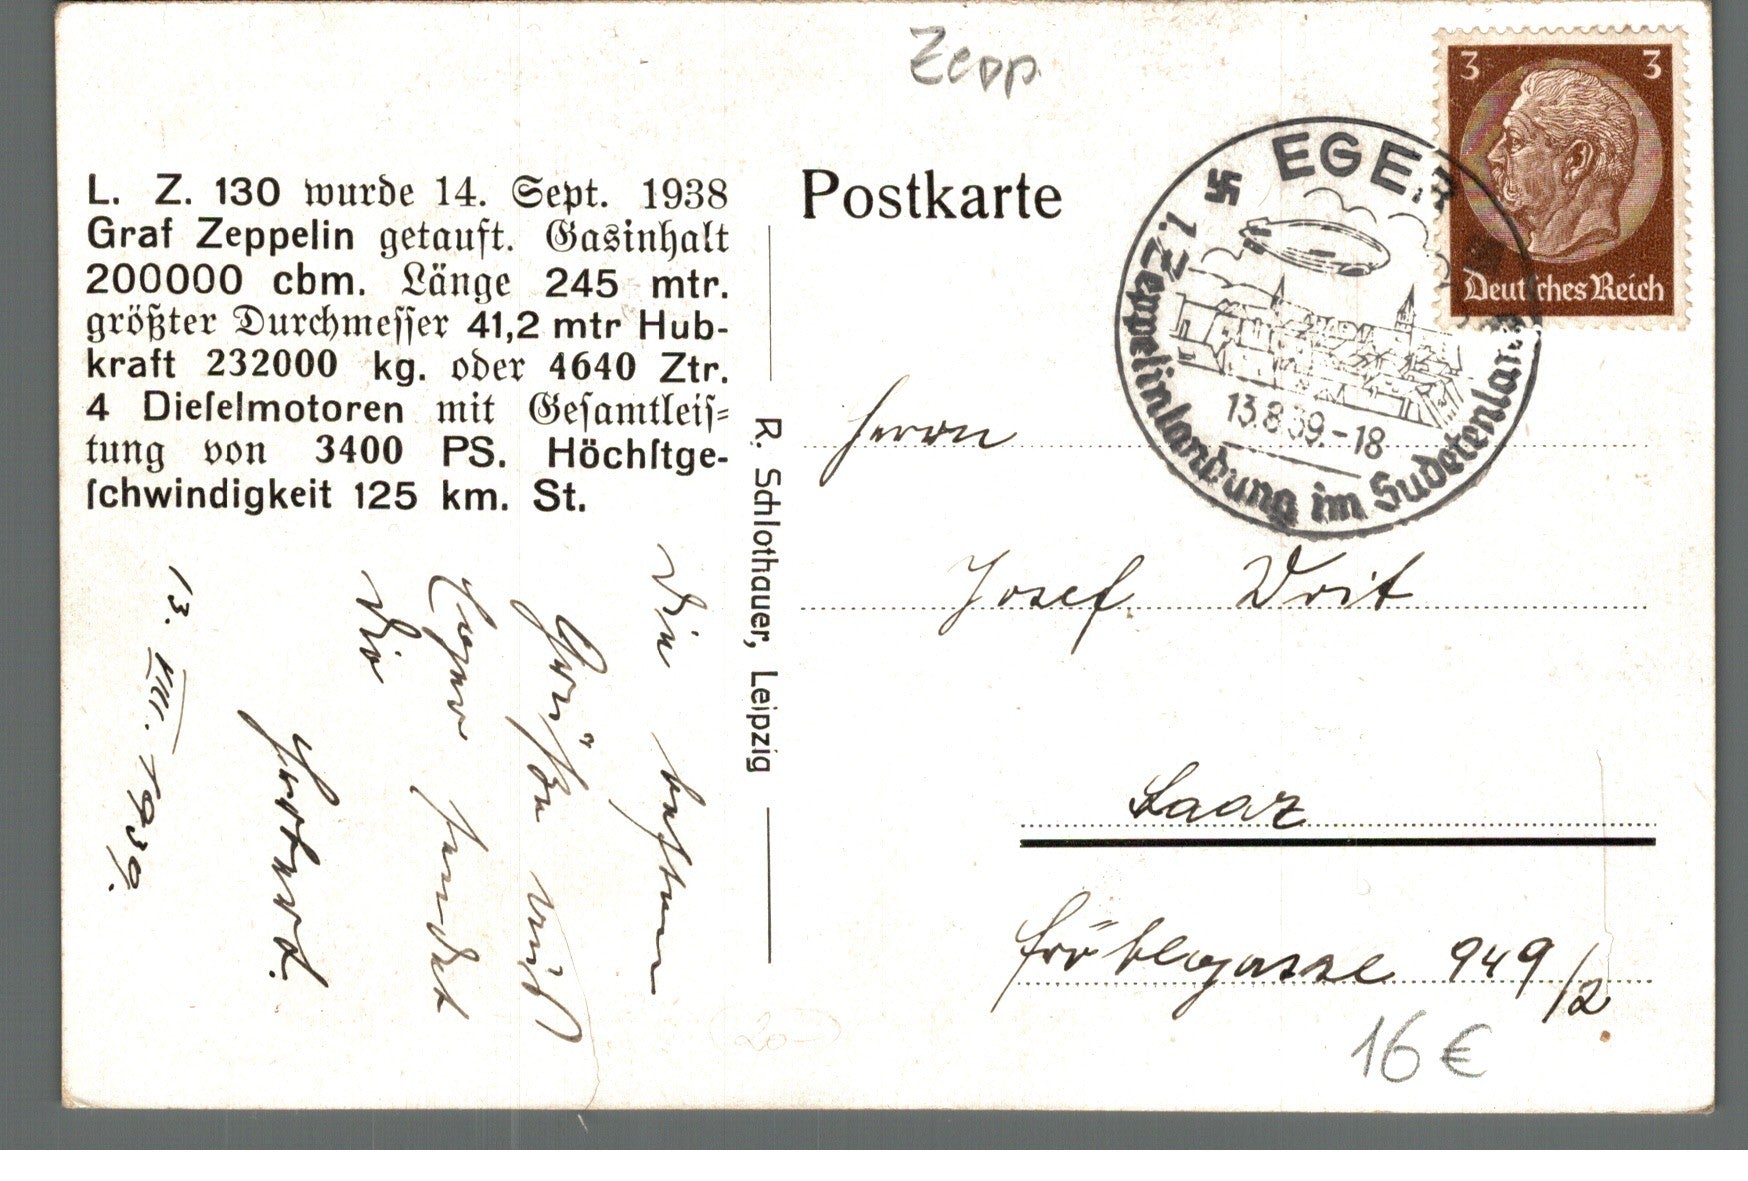 Zepp.
3 3
Deutsches Reich
EGER
1. Zeppelinlandung im Sudetenland
13.8.39.-18
L. Z. 130 wurde 14. Sept. 1938
Graf Zeppelin getauft. Gasinhalt
200000 cbm. Länge 245 mtr.
größter Durchmeſſer 41,2 mtr Hub-
kraft 232000 kg. oder 4640 Ztr.
4 Dieſelmotoren mit Geſamtleiſ-
tung von 3400 PS. Höchſtge-
ſchwindigkeit 125 km. St.
Postkarte
R. Schlothauer, Leipzig
Herrn
Josef
Saaz
949/2
16 €
Die besten
Grüße aus
Eger sendet
Dir
Herbert.
13. VIII. 1939.